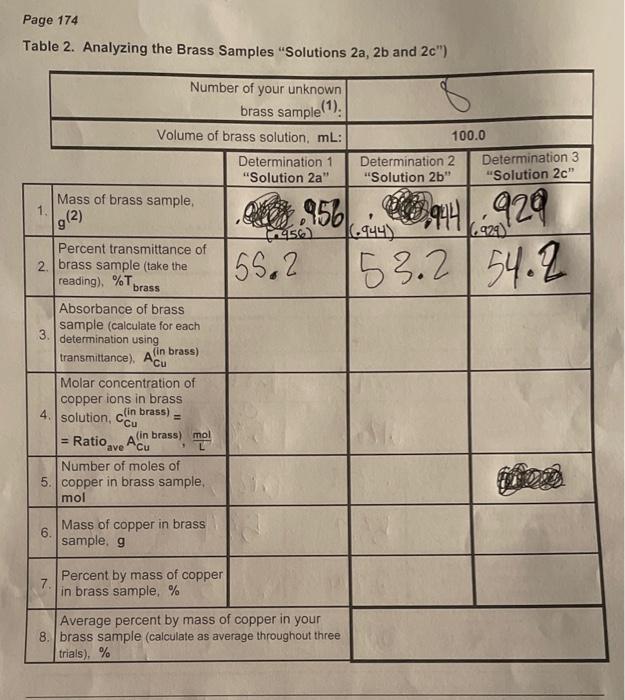 Page 174
Table 2. Analyzing the Brass Samples “Solutions 2a, 2b and 2c")
Number of your unknown
brass sample(1):
8
Volume of brass solution, mL:
100.0
Determination 1
"Solution 2a"
Determination 2
"Solution 2b"
Determination 3
"Solution 2c"
1.
Mass of brass sample,
g(2)
.956
(.956)
.944
(.944)
.929
(.929)
2.
Percent transmittance of
brass sample (take the
reading), %Tbrass
55.2
53.2
54.2
3.
Absorbance of brass
sample (calculate for each
determination using
transmittance), ACu(in brass)
4.
Molar concentration of
copper ions in brass
solution, cCu(in brass) =
= Ratioave ACu(in brass), mol/L
5.
Number of moles of
copper in brass sample,
mol
6.
Mass of copper in brass
sample, g
7.
Percent by mass of copper
in brass sample, %
8.
Average percent by mass of copper in your
brass sample (calculate as average throughout three
trials), %